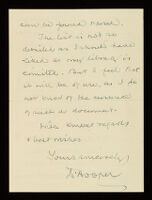 can be found [...]
The list is not so
detailed as I should have
liked as my library is
[...]. But I feel that
it will be of use, as I do
not know of the existence
of such a document.
With kindest regards
& best wishes
Yours sincerely
Hooper